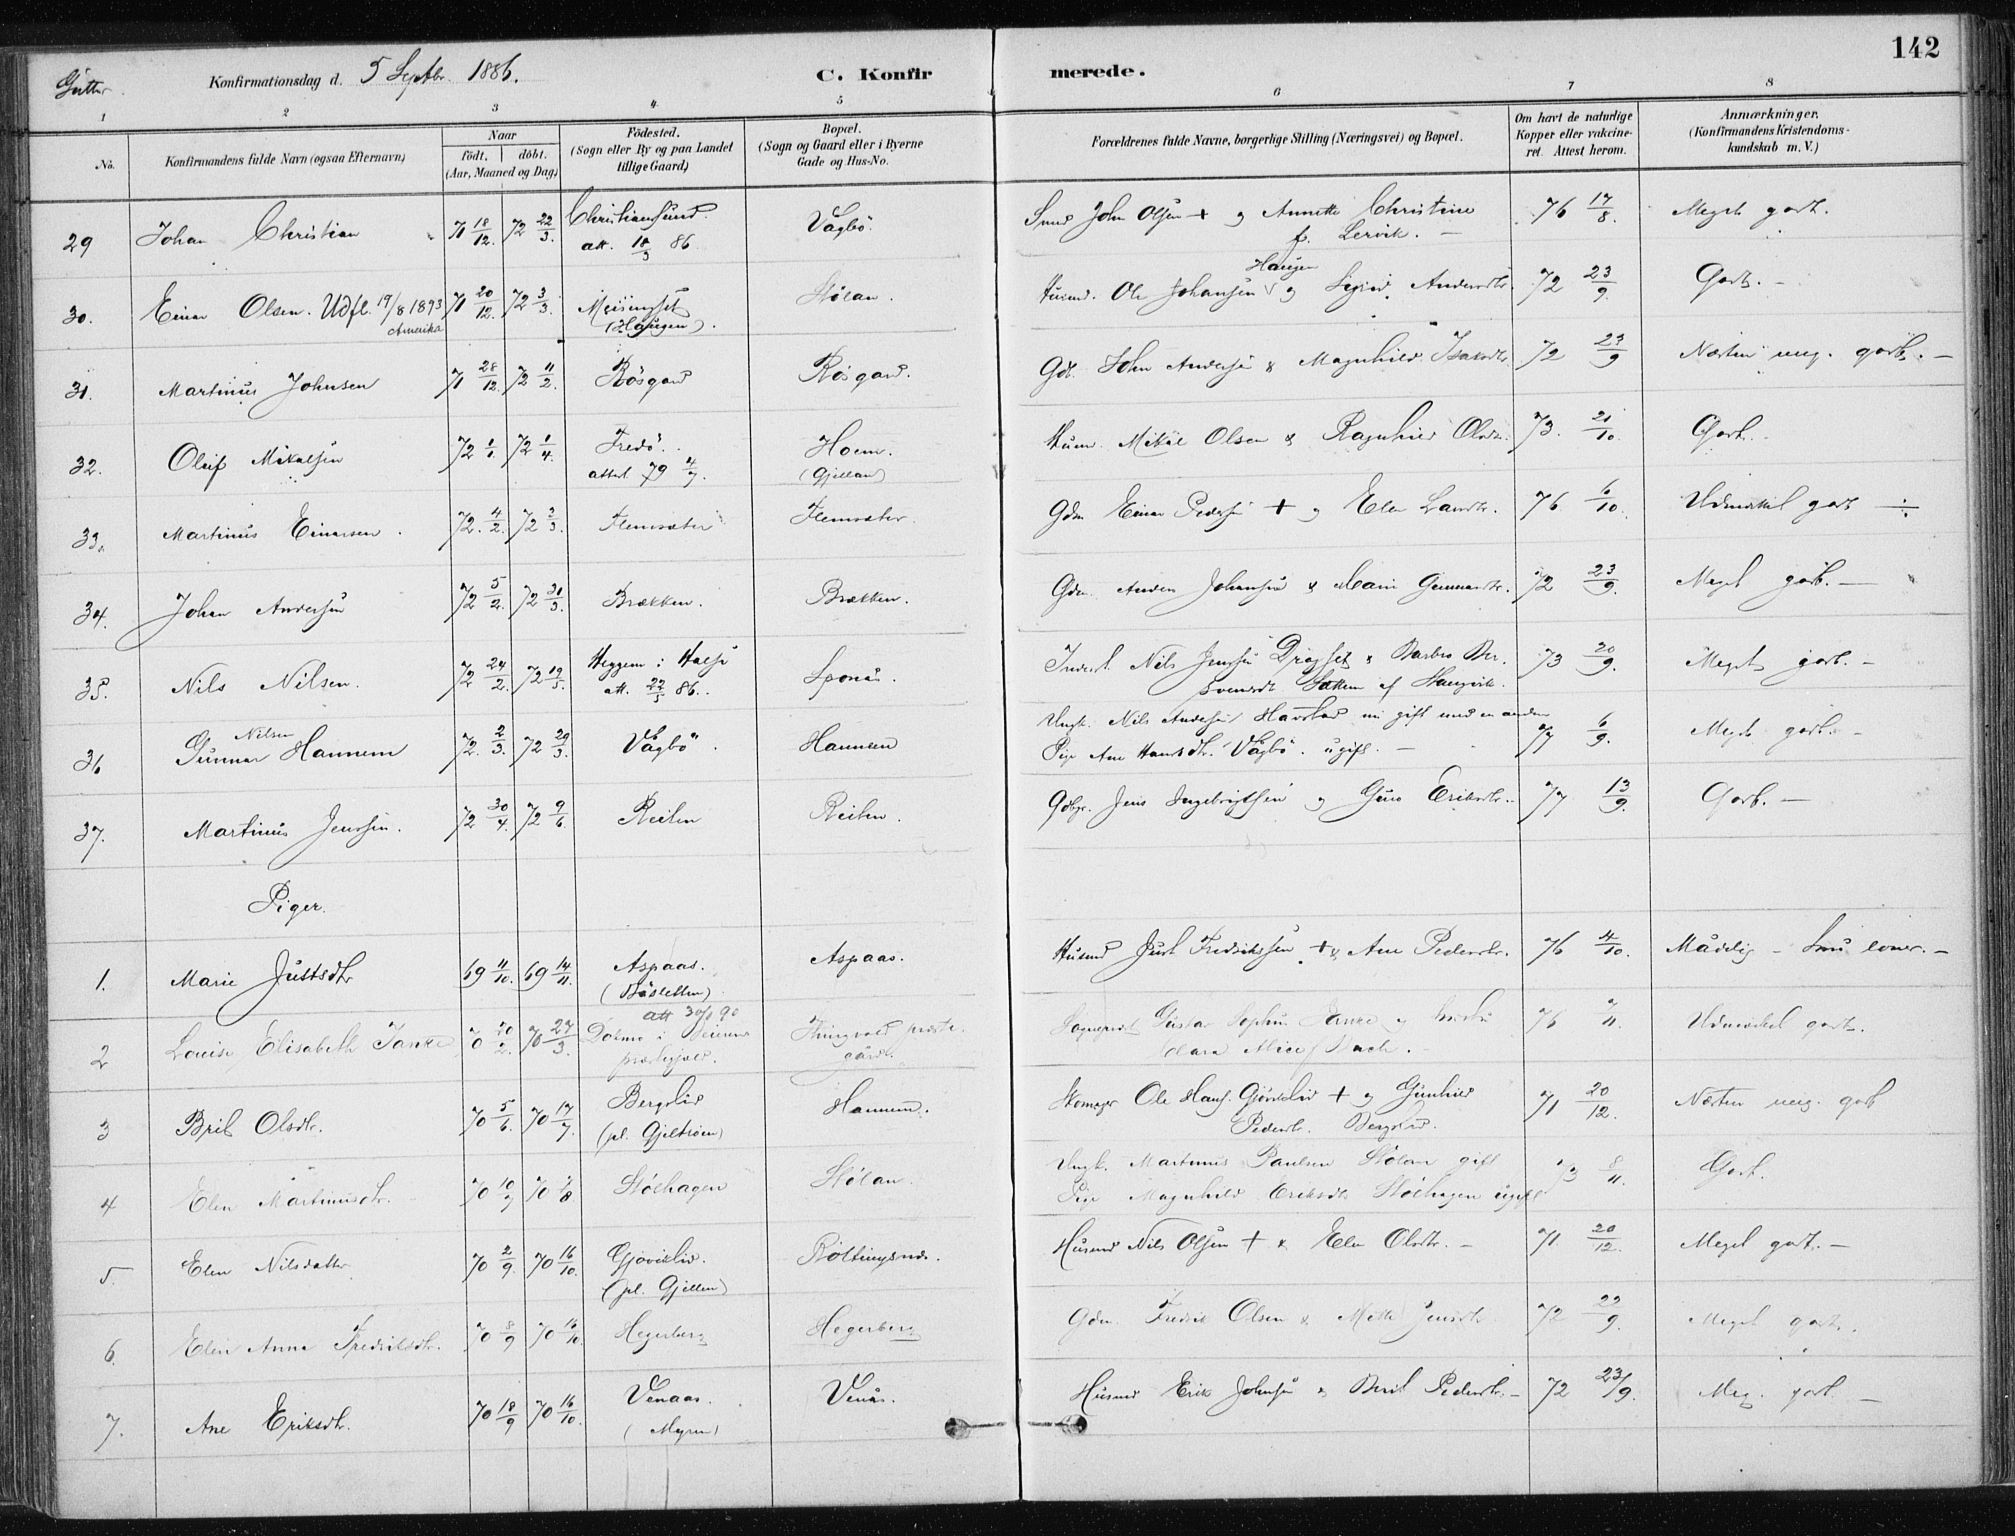 142
Gutter. Konfirmationsdag d. 5 Septbr. 1886. C. Konfirmerede.
1 2 3 4 5 6 7 8
No. Konfirmandens fulde Navn (ogsaa Efternavn) Naar født, døbt. (Aar, Maaned og Dag) Födested. (Sogn eller By og paa Landet tillige Gaard) Bopæl. (Sogn og Gaard eller i Byerne Gade og Hus-No. Forældrenes fulde Navne, borgerlige Stilling (Næringsvei) og Bopæl. Om havt de naturlige Kopper eller vakcineret. Attest herom. Anmærkninger. (Konfirmandens Kristendomskundskab m. V.)
29 Johan Christian 71 18/12. 72 22/3. Christiansund. att. 18/3 86. Vågbö. John Olsen + og Annette Christine f. Lervik. — 76 17/8. Meget godt.
30. Einar Olsen. Udfl. 19/8 1893 Amerika 71 20/12. 72 3/3. Meisingset (Haugen). Stölan. Husmd. Ole Johansen Haugen og Sigrid Andersdtr. 72 23/9. Godt. —
31. Martinus Johnsen 71 28/12. 72 11/2. Rösgard Rösgard. Gdm. John Andersen & Magnhild Isaksdtr. 72 23/9 Næsten meg. godt. —
32. Oluf Mikalsen 72 1/1. 72 1/4. Fredö. attest. 79 4/7. Hoem. (Gjellan) Husm. Mikal Olsen & Ragnhild Olsdtr. 73. 21/10. Godt.
33. Martinus Einarsen. 72. 4/2. 72 3/3. Flemsæter Flemsæter. Gdm Einar Pedersen + og Elen Larsdtr. 76 6/10. Udmerket godt
34. Johan Andersen 72 5/2. 72 31/3. Brækken. Brækken. Gdm. Anders Johansen & Mari Gunnarsdtr. 72 23/9. Meget godt. —
35. Nils Nilsen. 72 24/2. 72 19/5. Heggem i Halse att. 22/5 86. Sponås. Inderst. Nils Jensen Drøpset & Barbro Ber. Svensdt. Sætten af Stangvik. 73 20/9. Meget godt. —
36 Gunnar Nilsen Hannem 72. 2/3. 72 29/3. Vågbö. Hannem Ungk. Nils Andersen Havstad nu gift med en anden Pige Ane Hansdtr. Vågbö. ugift. — 77 6/9. Meget godt. —
37. Martinus Jenssen. 72 30/4. 72 9/6. Reiten Reiten. Jens Ingebrigtsen og Guro Eriksdtr. 77 13/9. Godt. —
Piger.
1. Marie Justsdtr 69 11/10. 69 14/11. Aspaas. (Båsletten) Aspaas. Husmd Just Fredriksen + & Ane Pedersdtr. 76 4/10. Mådelig —
2 Louise Elisabeth Janke 70 20/2. 70 27/3. att 30/1 90 Dolmø i præstegjæld. Thingvold præstegård. Sognepræst Gustav Sophus Janke og hustru Clara Alice Bach. 76 7/11. Udmerket godt.
3 Brit Olsdtr. 70 5/6. 70 17/7. Bergslid (pl. Gjeltrøen) Hannem. Skomager Ole Hans. Gjöviklid + og Gunhild Pedersdtr. Bergslid. 71 20/12. Næsten meg. godt
4 Elen Martinusdtr. 70 10/7 70 7/8 Stölhagen Stölan. Ungk. Martinus Paulsen Stölan gift Pige Magnhild Eriksdtr Stölhagen ugift 73 8/11. Godt.
5. Elen Nilsdatter 70 2/9. 70 16/10. Gjöviklid. (pl. Gjellen) Röttingsnæs. Husmd Nils Olsen + & Elen Olsdtr. — 71 20/12. Meget godt. —
6. Elen Anna Fredriksdtr. 70 8/9 70 16/10. Hegerberg Hegerberg Gdm. Fredrik Olsen & Mette Jensdtr. 72 22/9. Meget godt.
7. Ane Eriksdtr. 70 18/9 70 16/10. Venaas. (Myren) Venås. Husmd Erik Johnsen & Berit Pedersdtr. — 72 23/9. Meg. godt. —